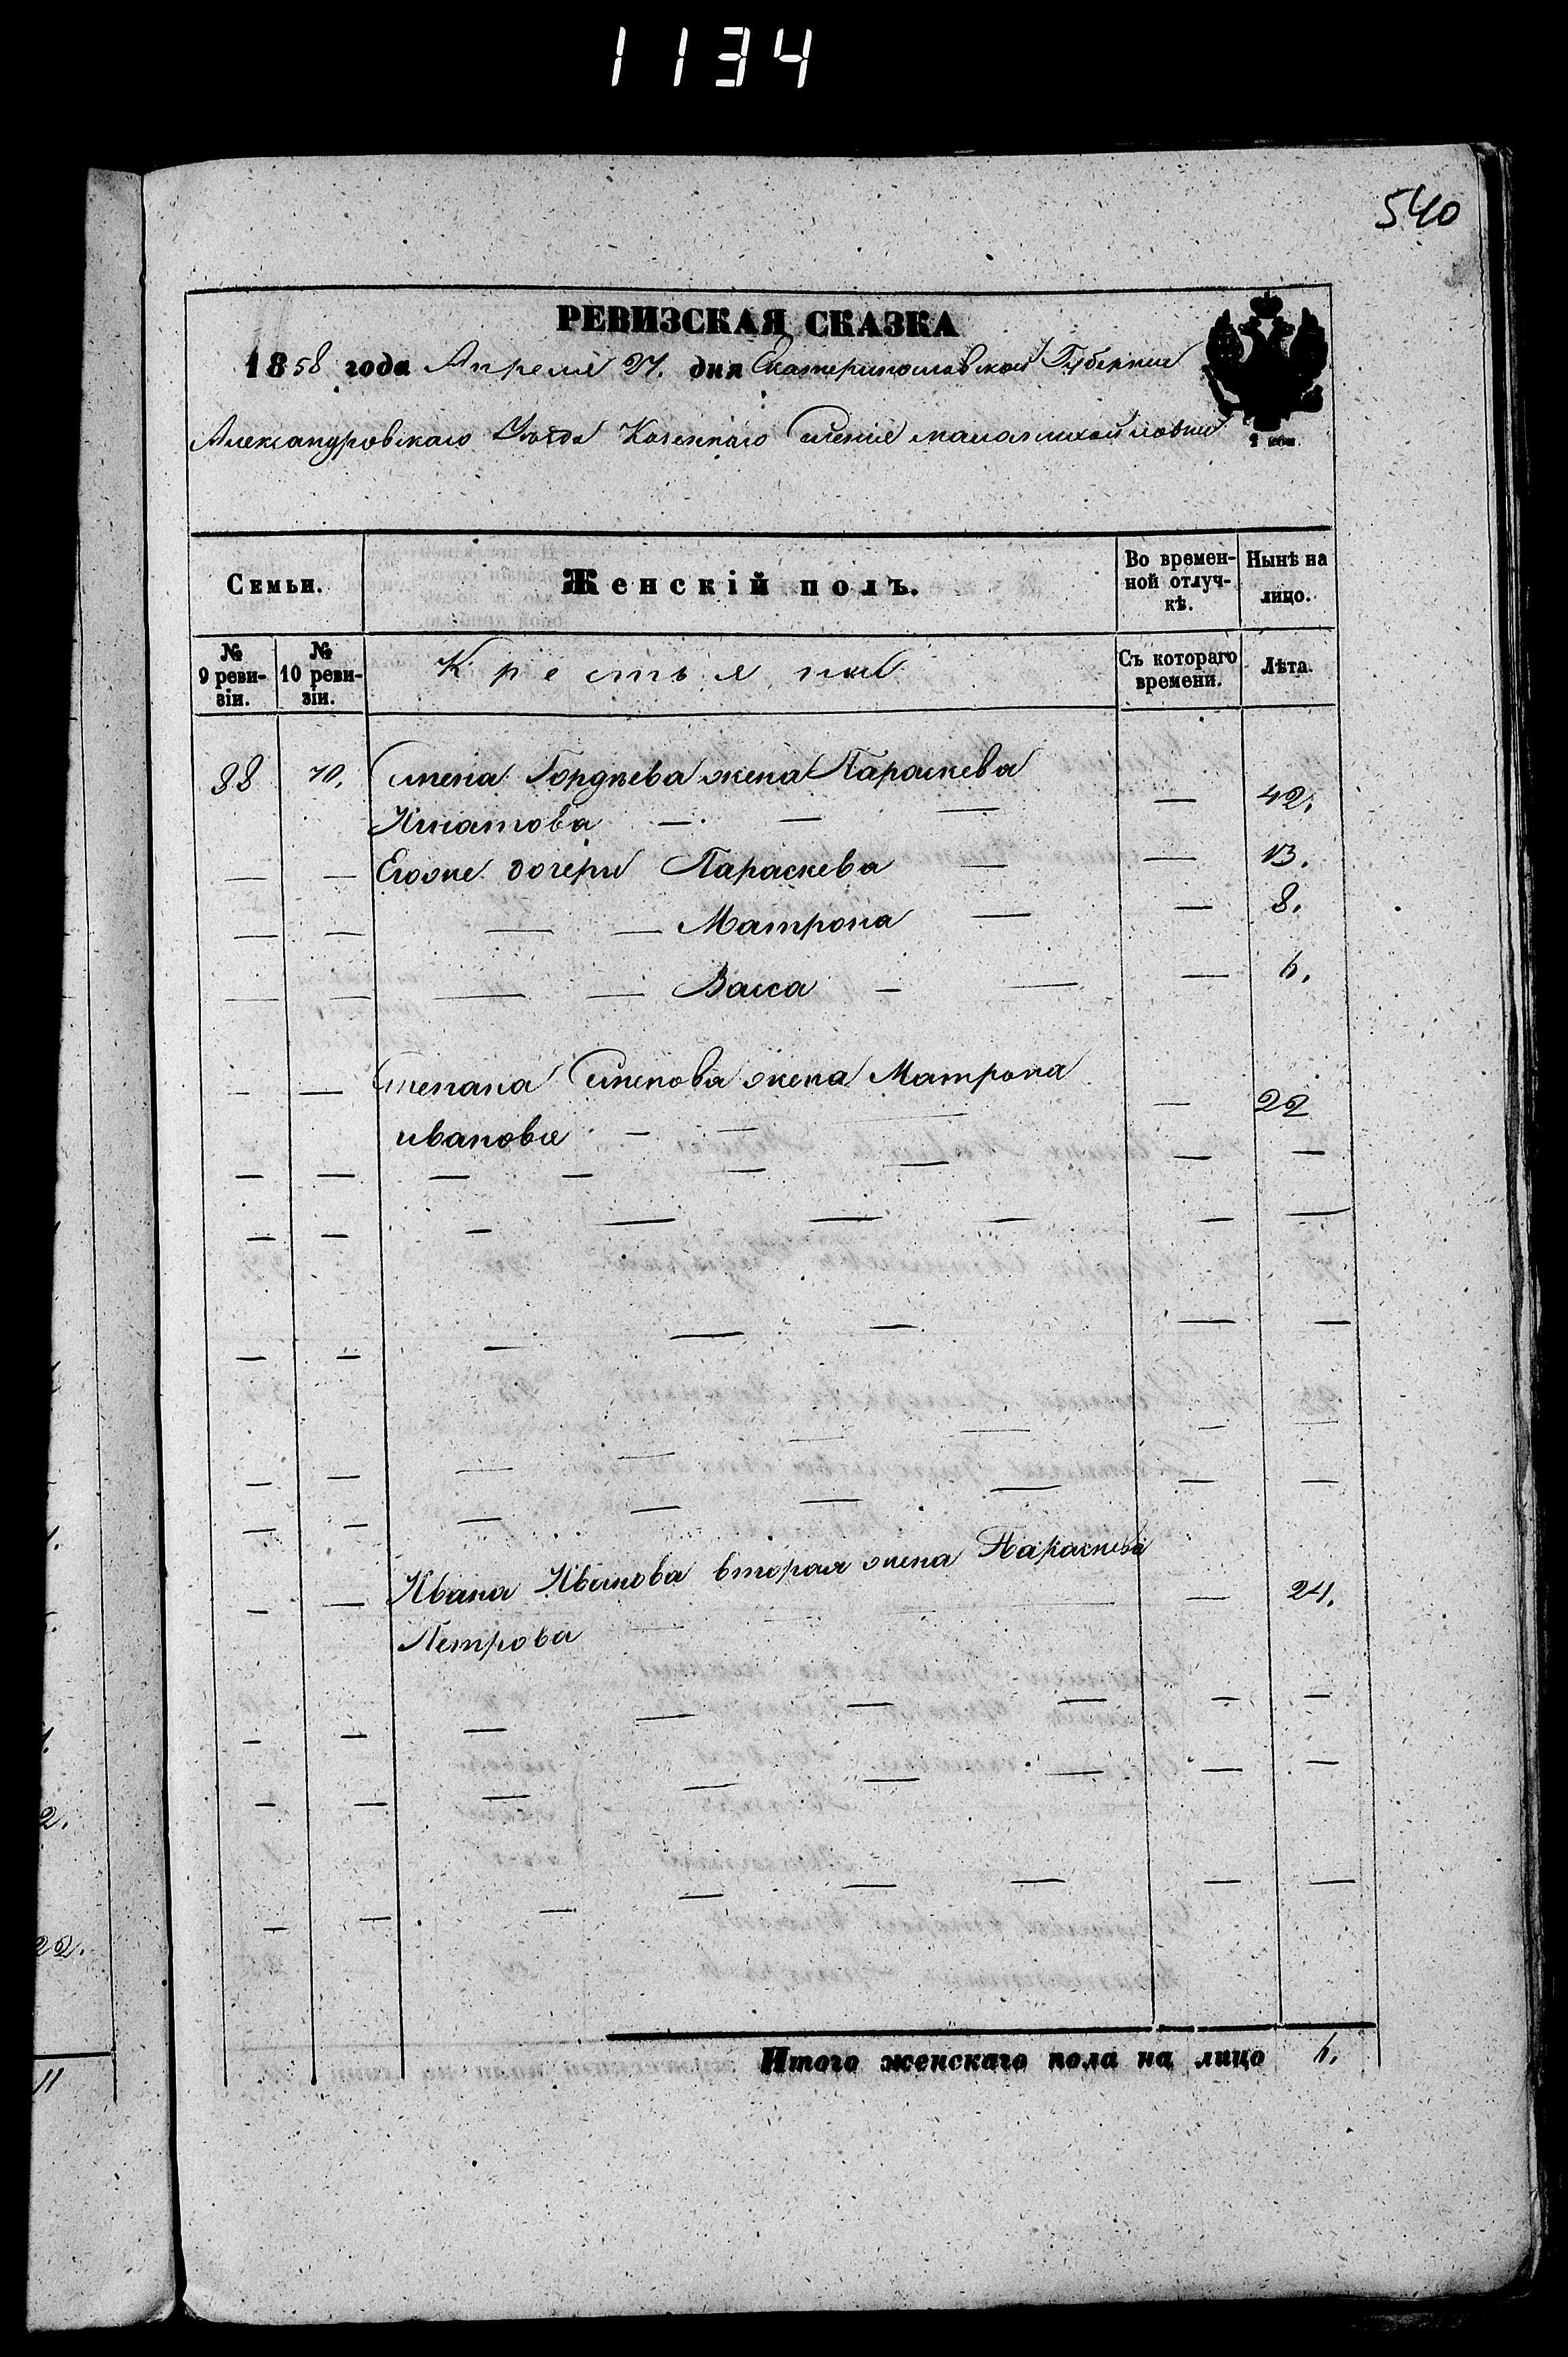 1134
540
РЕВИЗСКАЯ СКАЗКА
1858 года Апреля 27. дня Екатеринославской Губернии
Александровскаго Уѣзда Казеннаго Селенія маломихайловки
1 коп.
Семьи. Женскій полъ. Во времен-ной отлуч-кѣ. Нынѣ на лицо.
№ 9 реви-зіи. № 10 реви-зіи. Крестьяне Съ котораго времени. Лѣта.
88 70. Семена Гордѣева жена Параскева
Игнатова — — — — 42.
— — Егоже дочери Параскева — — 13.
— — — — Матрона — — 8.
— — — — Васса — — — 6.
— — Степана Семенова жена Матрона
ивановa — — — — 22
— — — — — — — —
— — — — — — — —
— — — — — — —
— — — — — — — —
— — — — — — — —
— — Ивана Иванова вторая жена Параскева — 24.
Петрова —
— — — — — — — —
— — — — — — — —
— — — — — — — —
Итого женскаго пола на лицо 6.
2.
22.
11